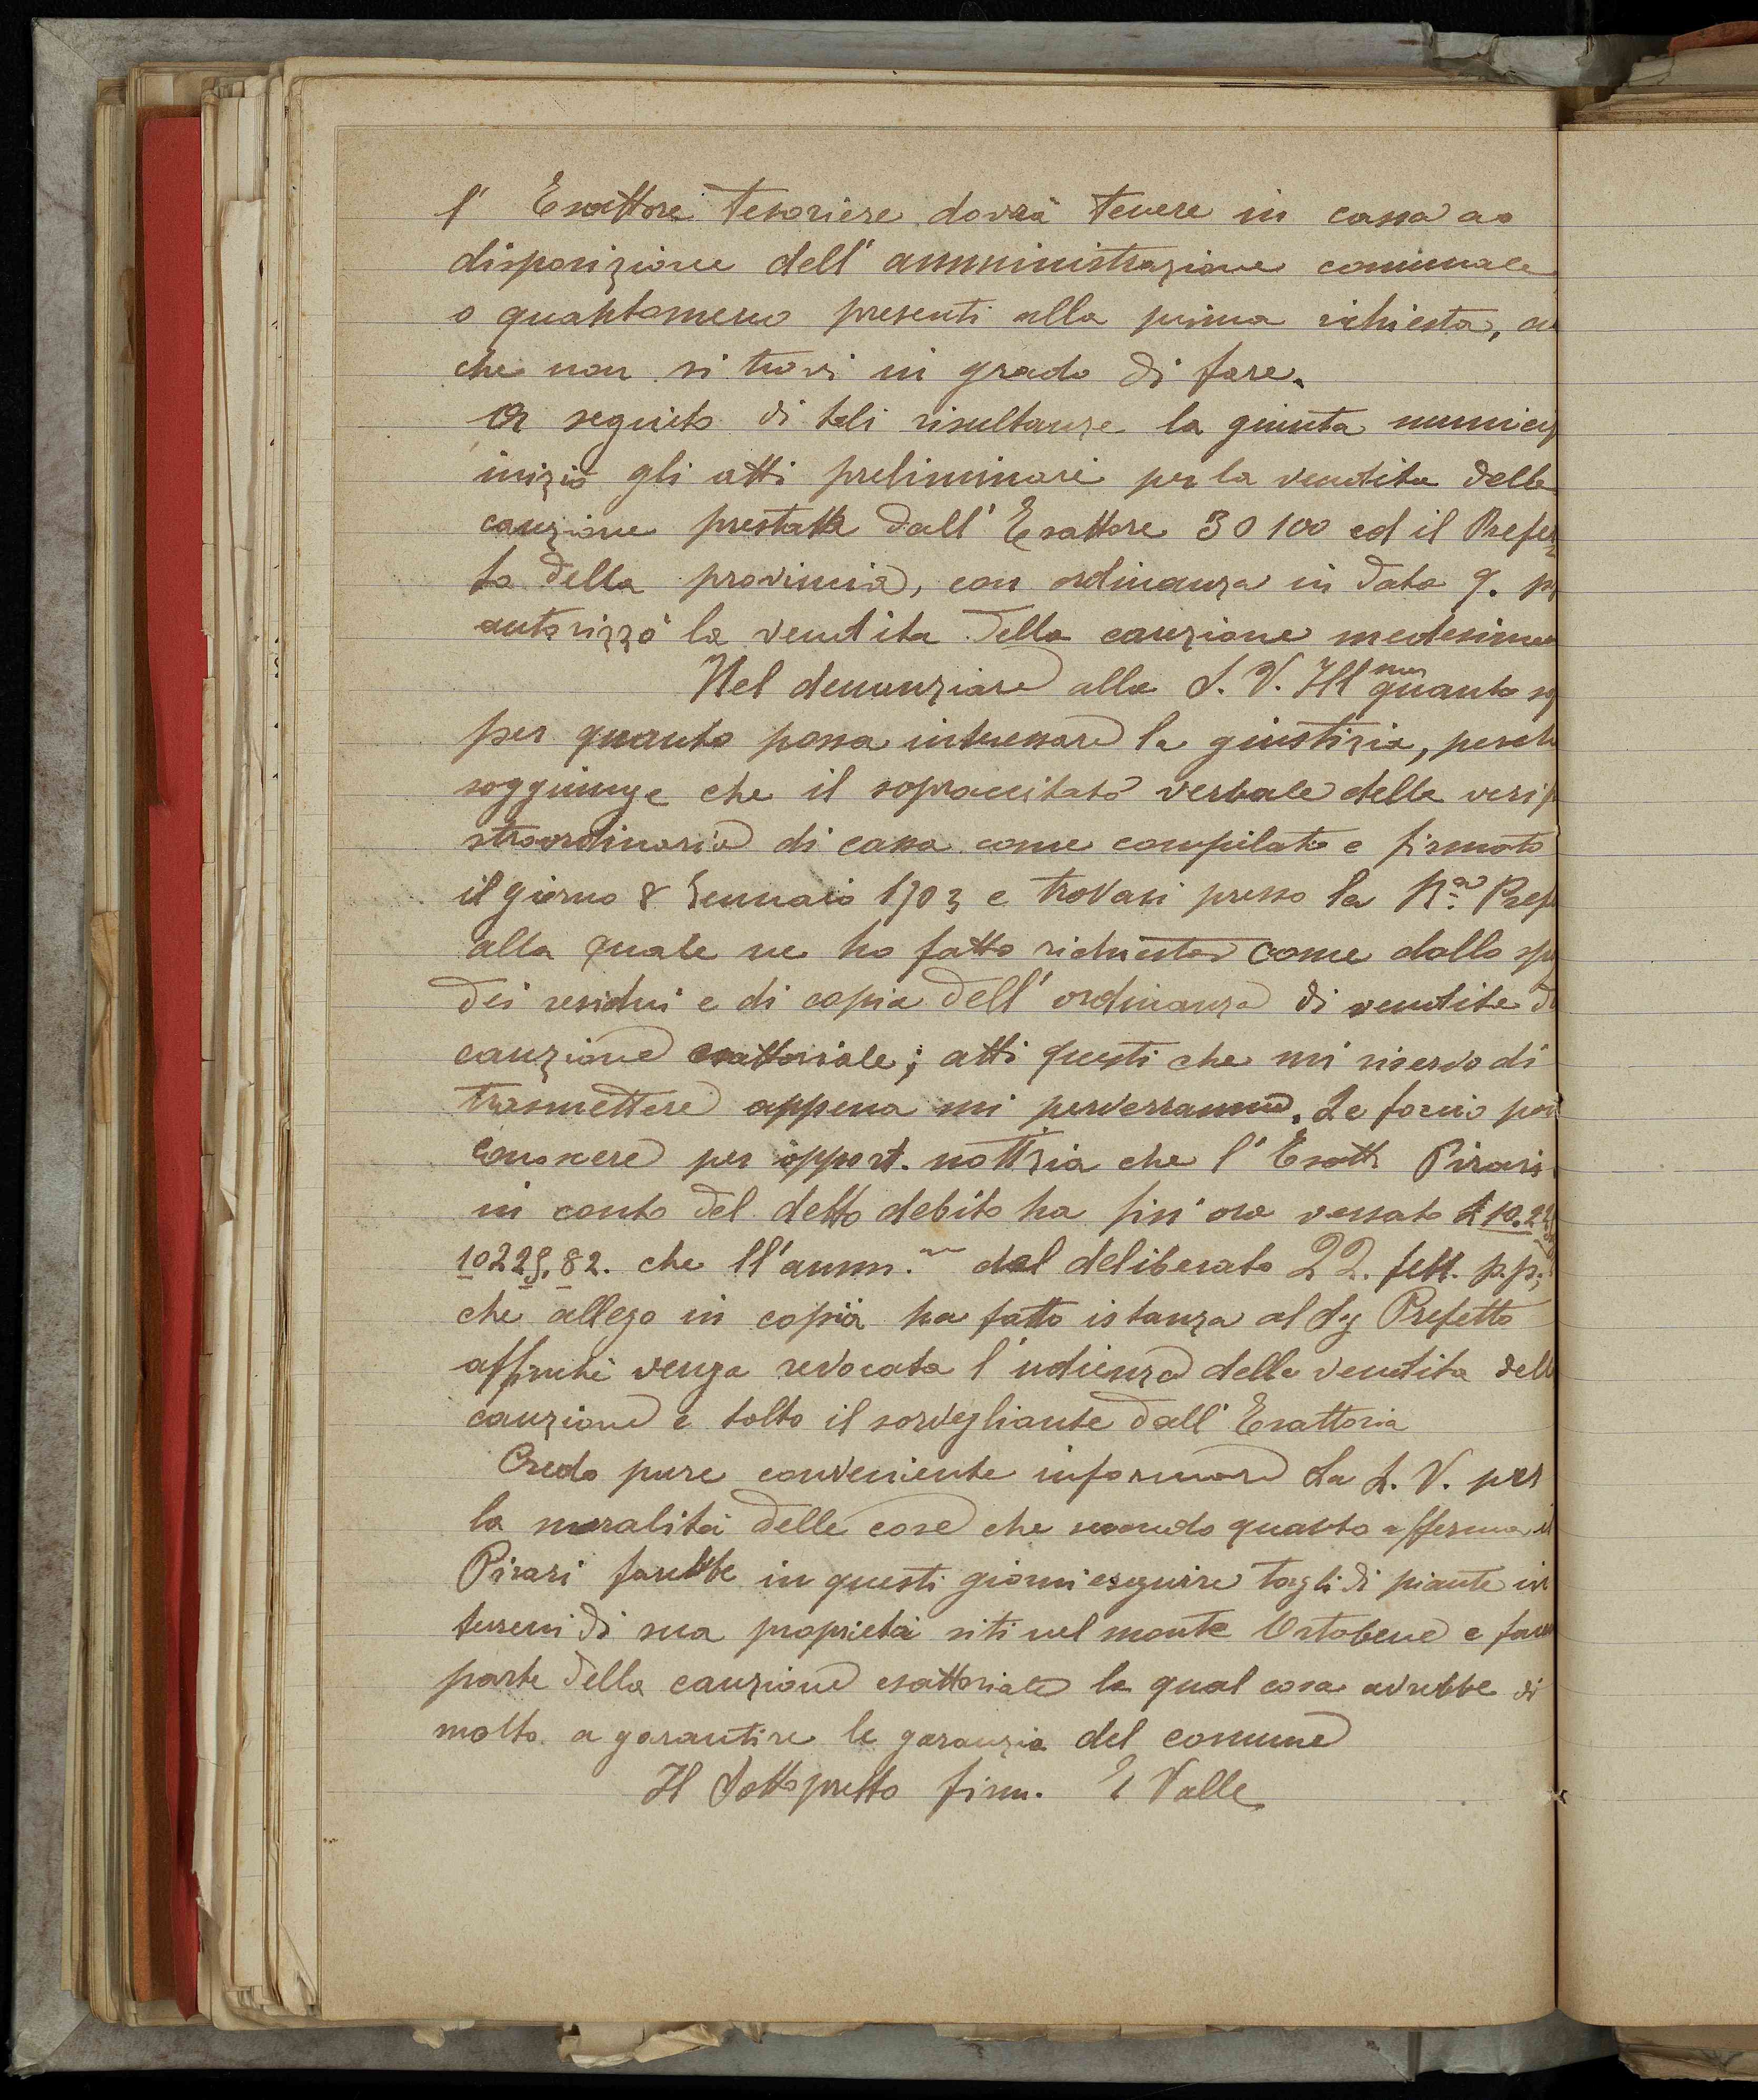 l' Esattore Tesoriere dovrà tenere in cassa a
disposizione dell' amministrazione comunale
o quantomeno presenti alla prima richiesta,
che non si trovi in grado di fare.
A seguito di tali risultanze la giunta municip
iniziò gli atti preliminari per la vendita della
cauzione prestata dall' Esattore 30100 ed il Prefet
to della provincia, con ordinanza in data 9. p
autorizzò la vendita della cauzione medesima
Nel denunziare alla S. V. Ill ma quanto so
per quanto possa interessare la giustizia,
soggiunge che il sopraccitato verbale della verif
straordinaria di cassa come compilato e firmato
il giorno 8 Gennaio 1903 e trovasi presso la R.a Pref
alla quale ne ho fatto richiesta come dallo
dei residui e di copia dell' ordinanza di vendita d
cauzione esattoriale; atti questi che mi riservo di
trasmettere appena mi perverranno. Le faccio poi
conoscere per opport. notizia che l' Esatt Pirari
in conto del detto debito ha fin' ora versato £ 10.22
10229,82. che ll'amm.ne dal deliberato 22. febb. p.p;
che allego in copia ha fatto istanza al Sg Prefetto
affinché venga revocata l' udienza della vendita dell
cauzione e tolto il sorvegliante dall' Esattoria
Credo pure conveniente informare La S. V. per
la moralità delle cose che secondo quanto afferma il
Pirari farebbe in questi giorni eseguire tagli di piante in
terreni di sua proprietà siti nel monte Ortobene e fac
parte della cauzione esattoriale la qual cosa avrebbe di
molto a garantire le garanzia del comune
Il Sottopretto firm. E Valle